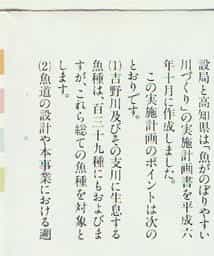 設局と高知県は「魚がのぼりやすい
川づくり」の実施計画書を平成六
年十月に作成しました。
この実施計画のポイントは次の
とおりです。
⑴吉野川及びその支川に生息する
魚種は、百三十九種にもおよびま
すが、これら総ての魚種を対象と
します。
⑵魚道の設計や本事業における週